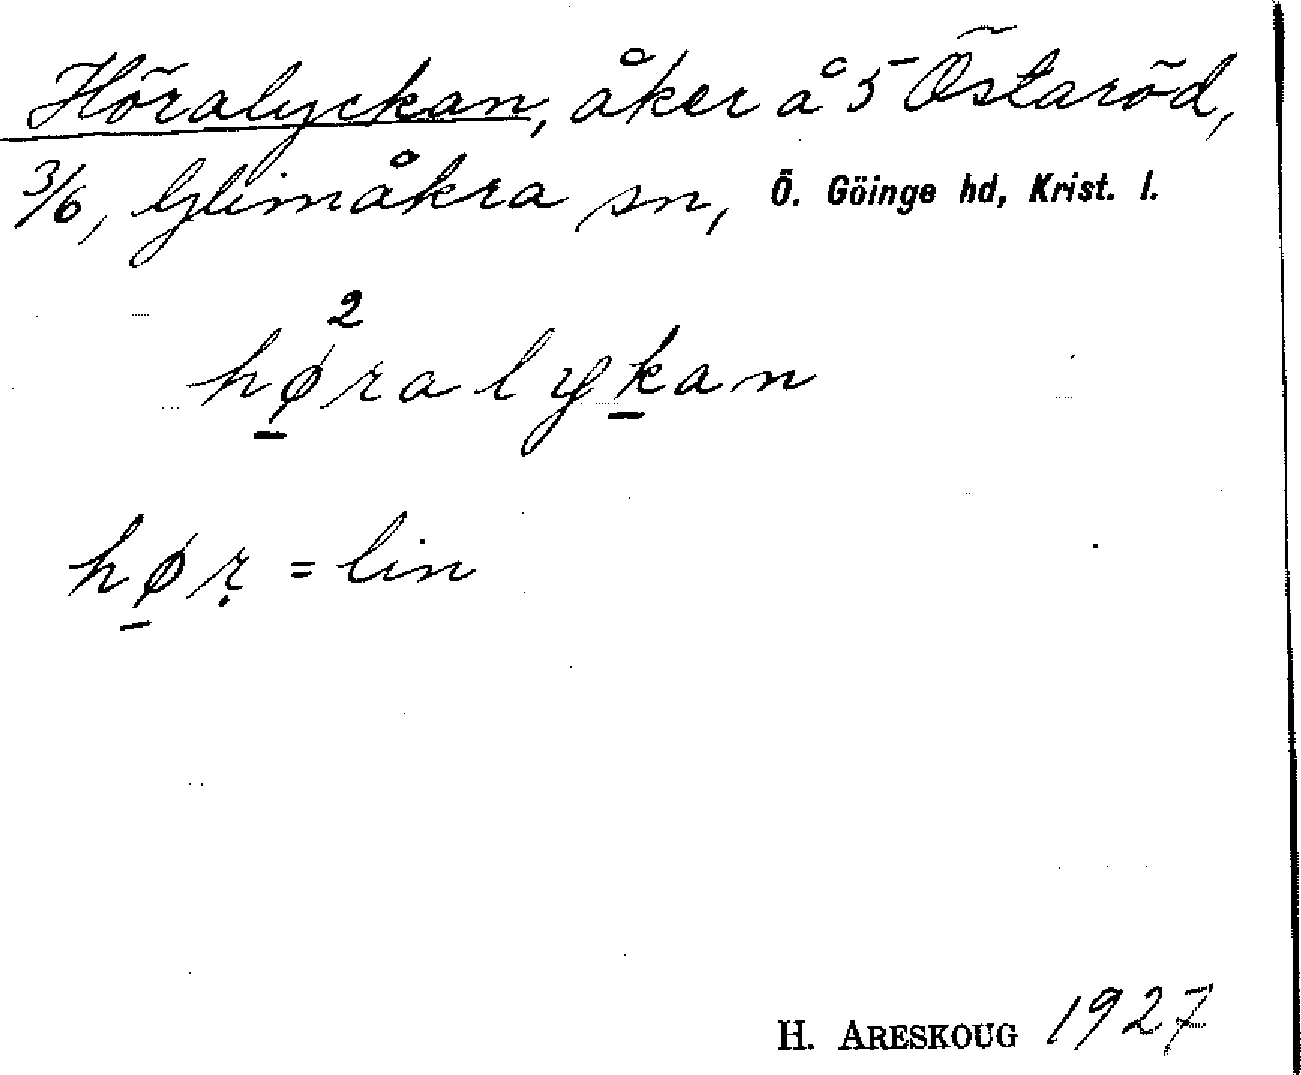 Höralyckan, åker å 5 Östaröd,
3/6, Glimåkra sn, Ö. Göinge hd, Krist. l.
2
hø̱ralyḵan
hø̱ṛ = lin
H. ARESKOUG 1927